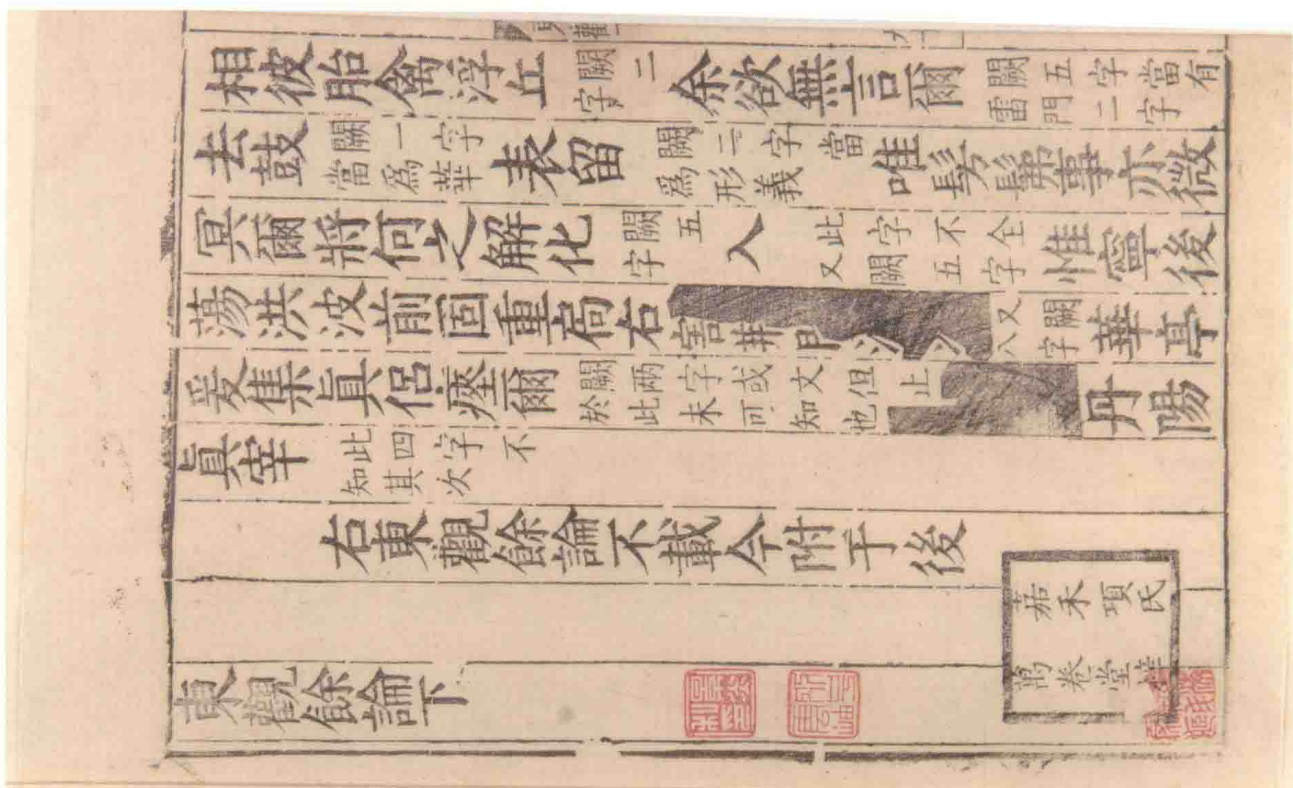 相彼胎禽浮丘闕二字余欲無言爾闕五字當有雷門二字
去鼓闕一字當為華表留闕二字當為形義唯髣髴事亦微
冥爾將何之解化闕五字入此字不全又闕五字惟寧後
蕩洪波前固重扃右割荆門又闕八字華亭
爰集眞侶瘞爾闕兩字或文但止於此未可知也丹陽
眞宰此四字不知其次
右東觀餘論不載今附于後
嘉禾項氏
萬卷堂梓
東觀餘論下